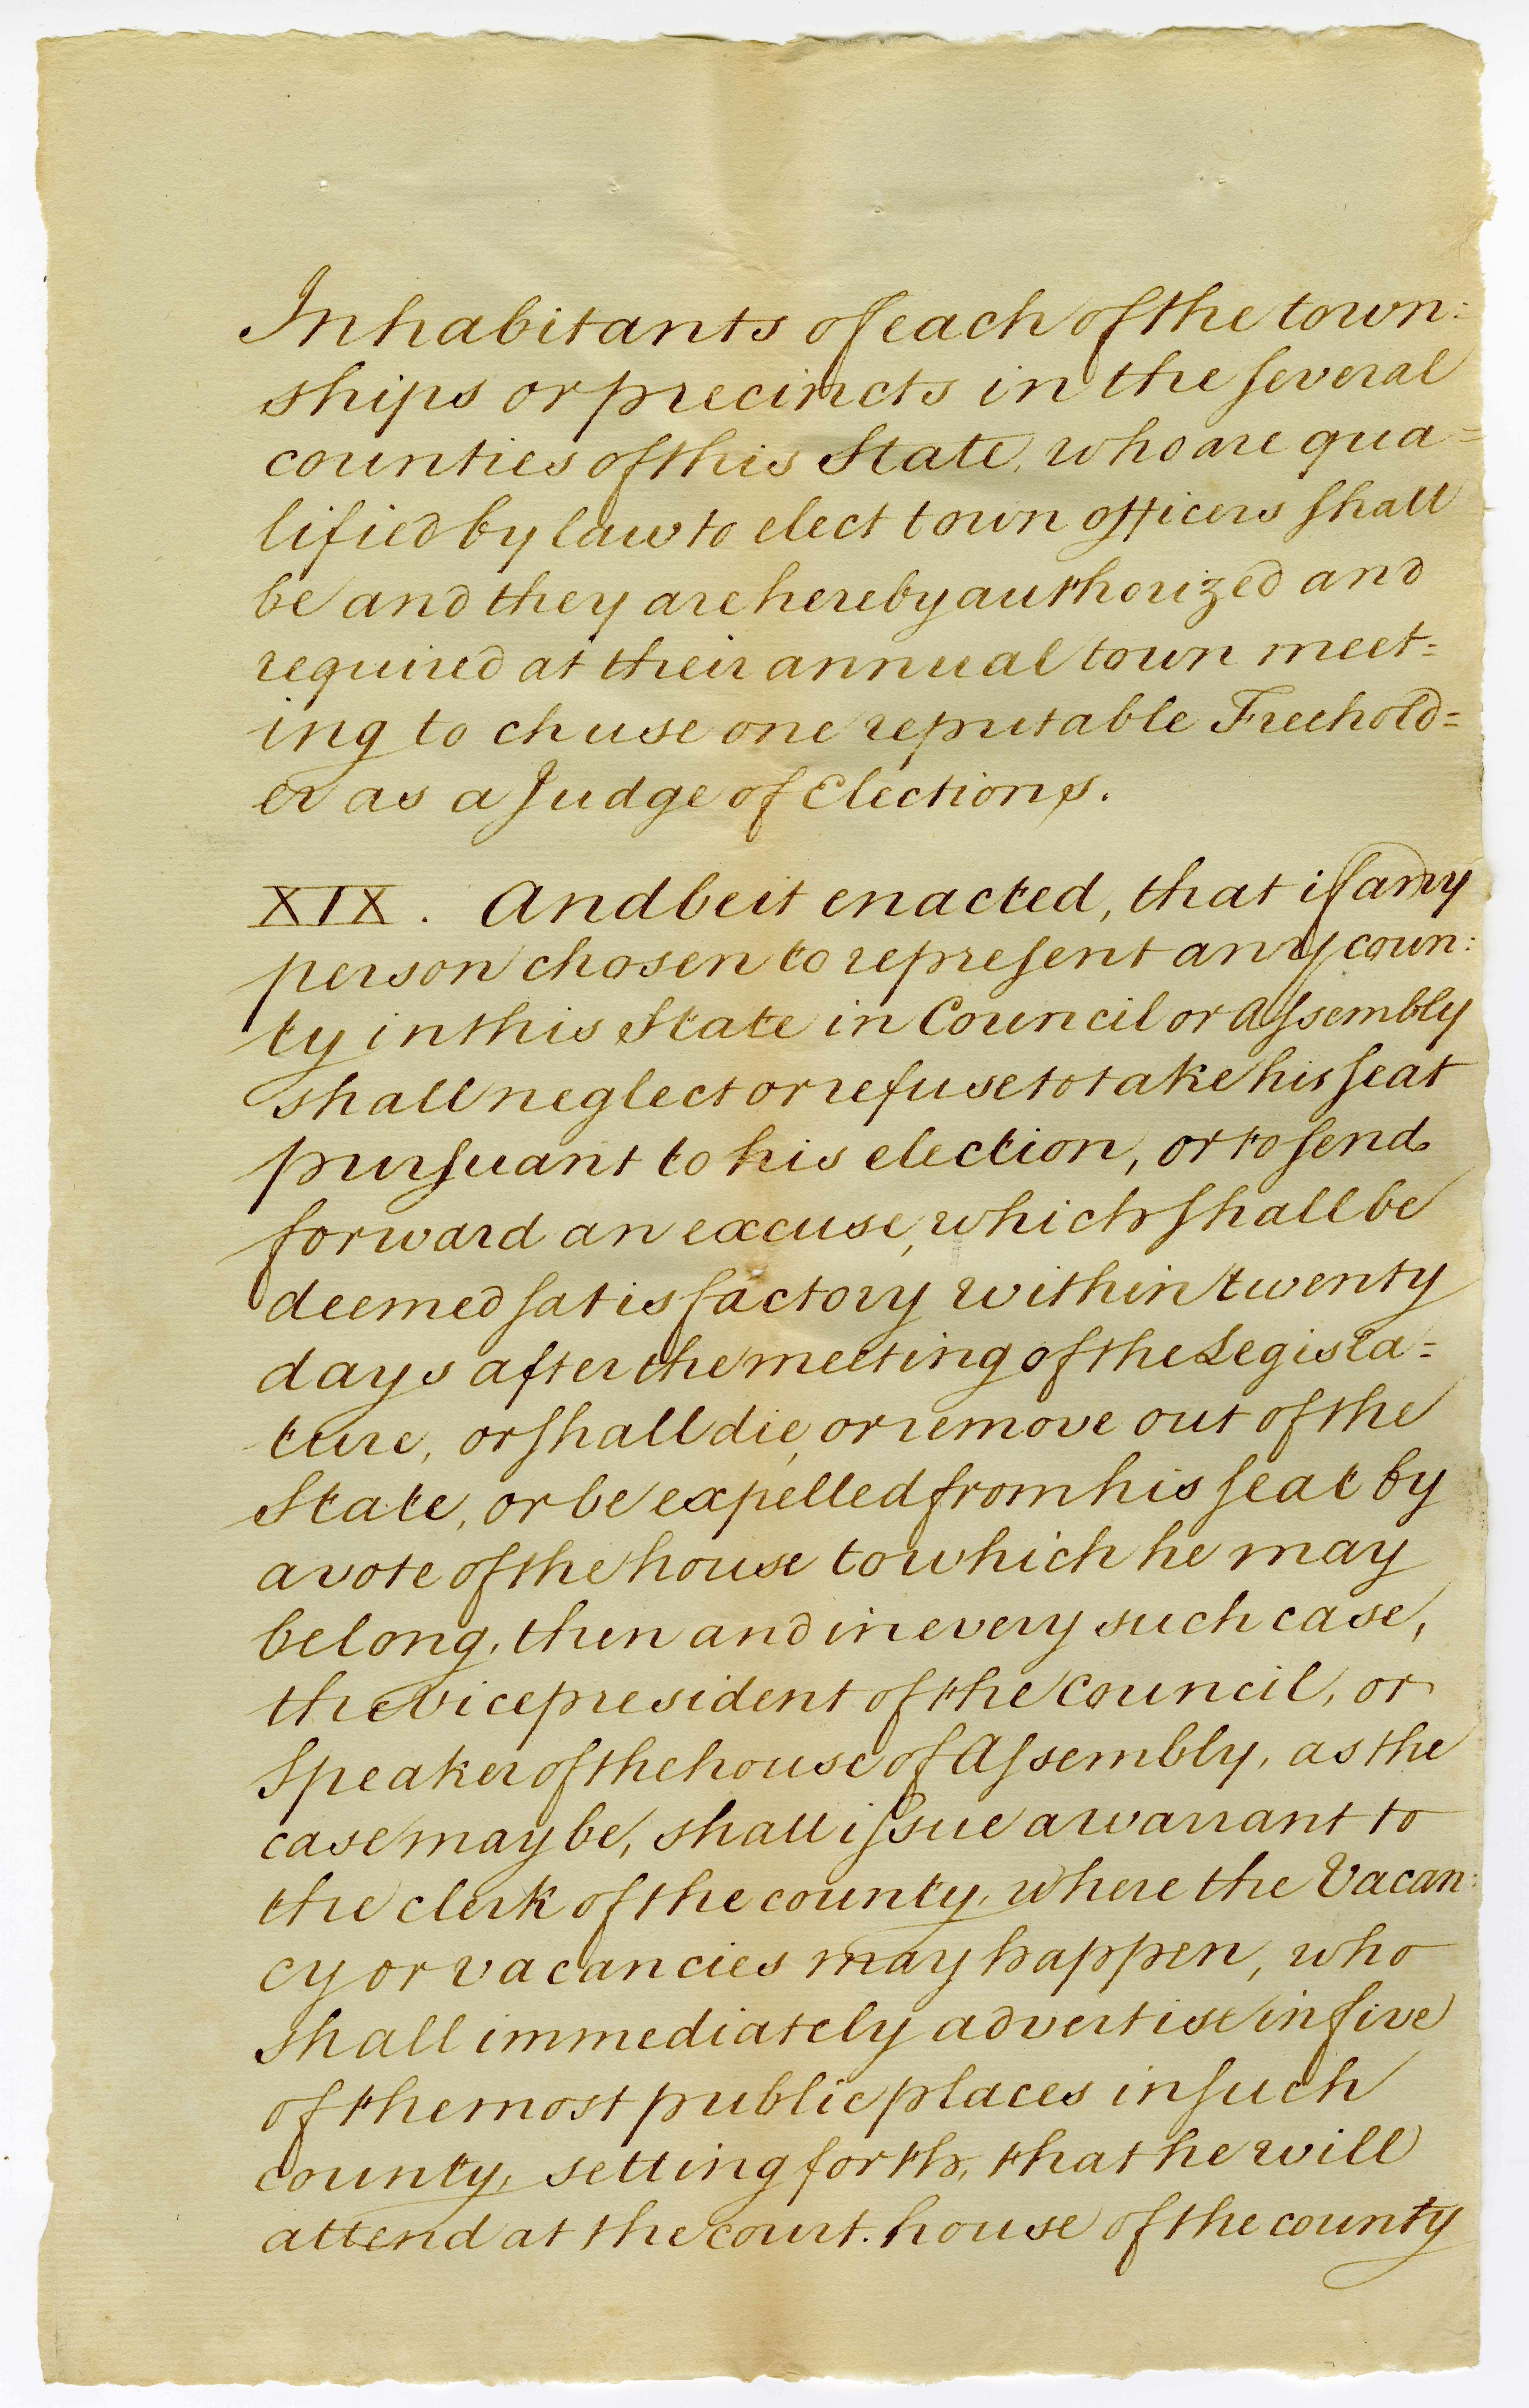 Inhabitants of each of the town:
ships or precincts in the several
counties of this State, who are qua=
lified by law to elect town officers shall
be and they are hereby authorized and
required at their annual town meet=
ing to chuse one reputable Freehold=
er as a Judge of Elections.
XIX. And be it enacted, that if any
person chosen to represent any coun:
ty in this State in Council or Assembly
shall neglect or refuse to take his seat
pursuant to his election, or to send
forward an excuse, which shall be
deemed satisfactory within twenty
days after the meeting of the Legisla=
ture, or shall die, or remove out of the
State, or be expelled from his seat by
a vote of the house to which he may
belong, then and in every such case,
the vice president of the Council, or
Speaker of the house of Assembly, as the
case may be, shall issue a warrant to
the clerk of the county, where the Vacan:
cy or vacancies may happen, who
shall immediately advertise in five
of the most public places in such
county, setting forth, that he will
attend at the court.house of the county